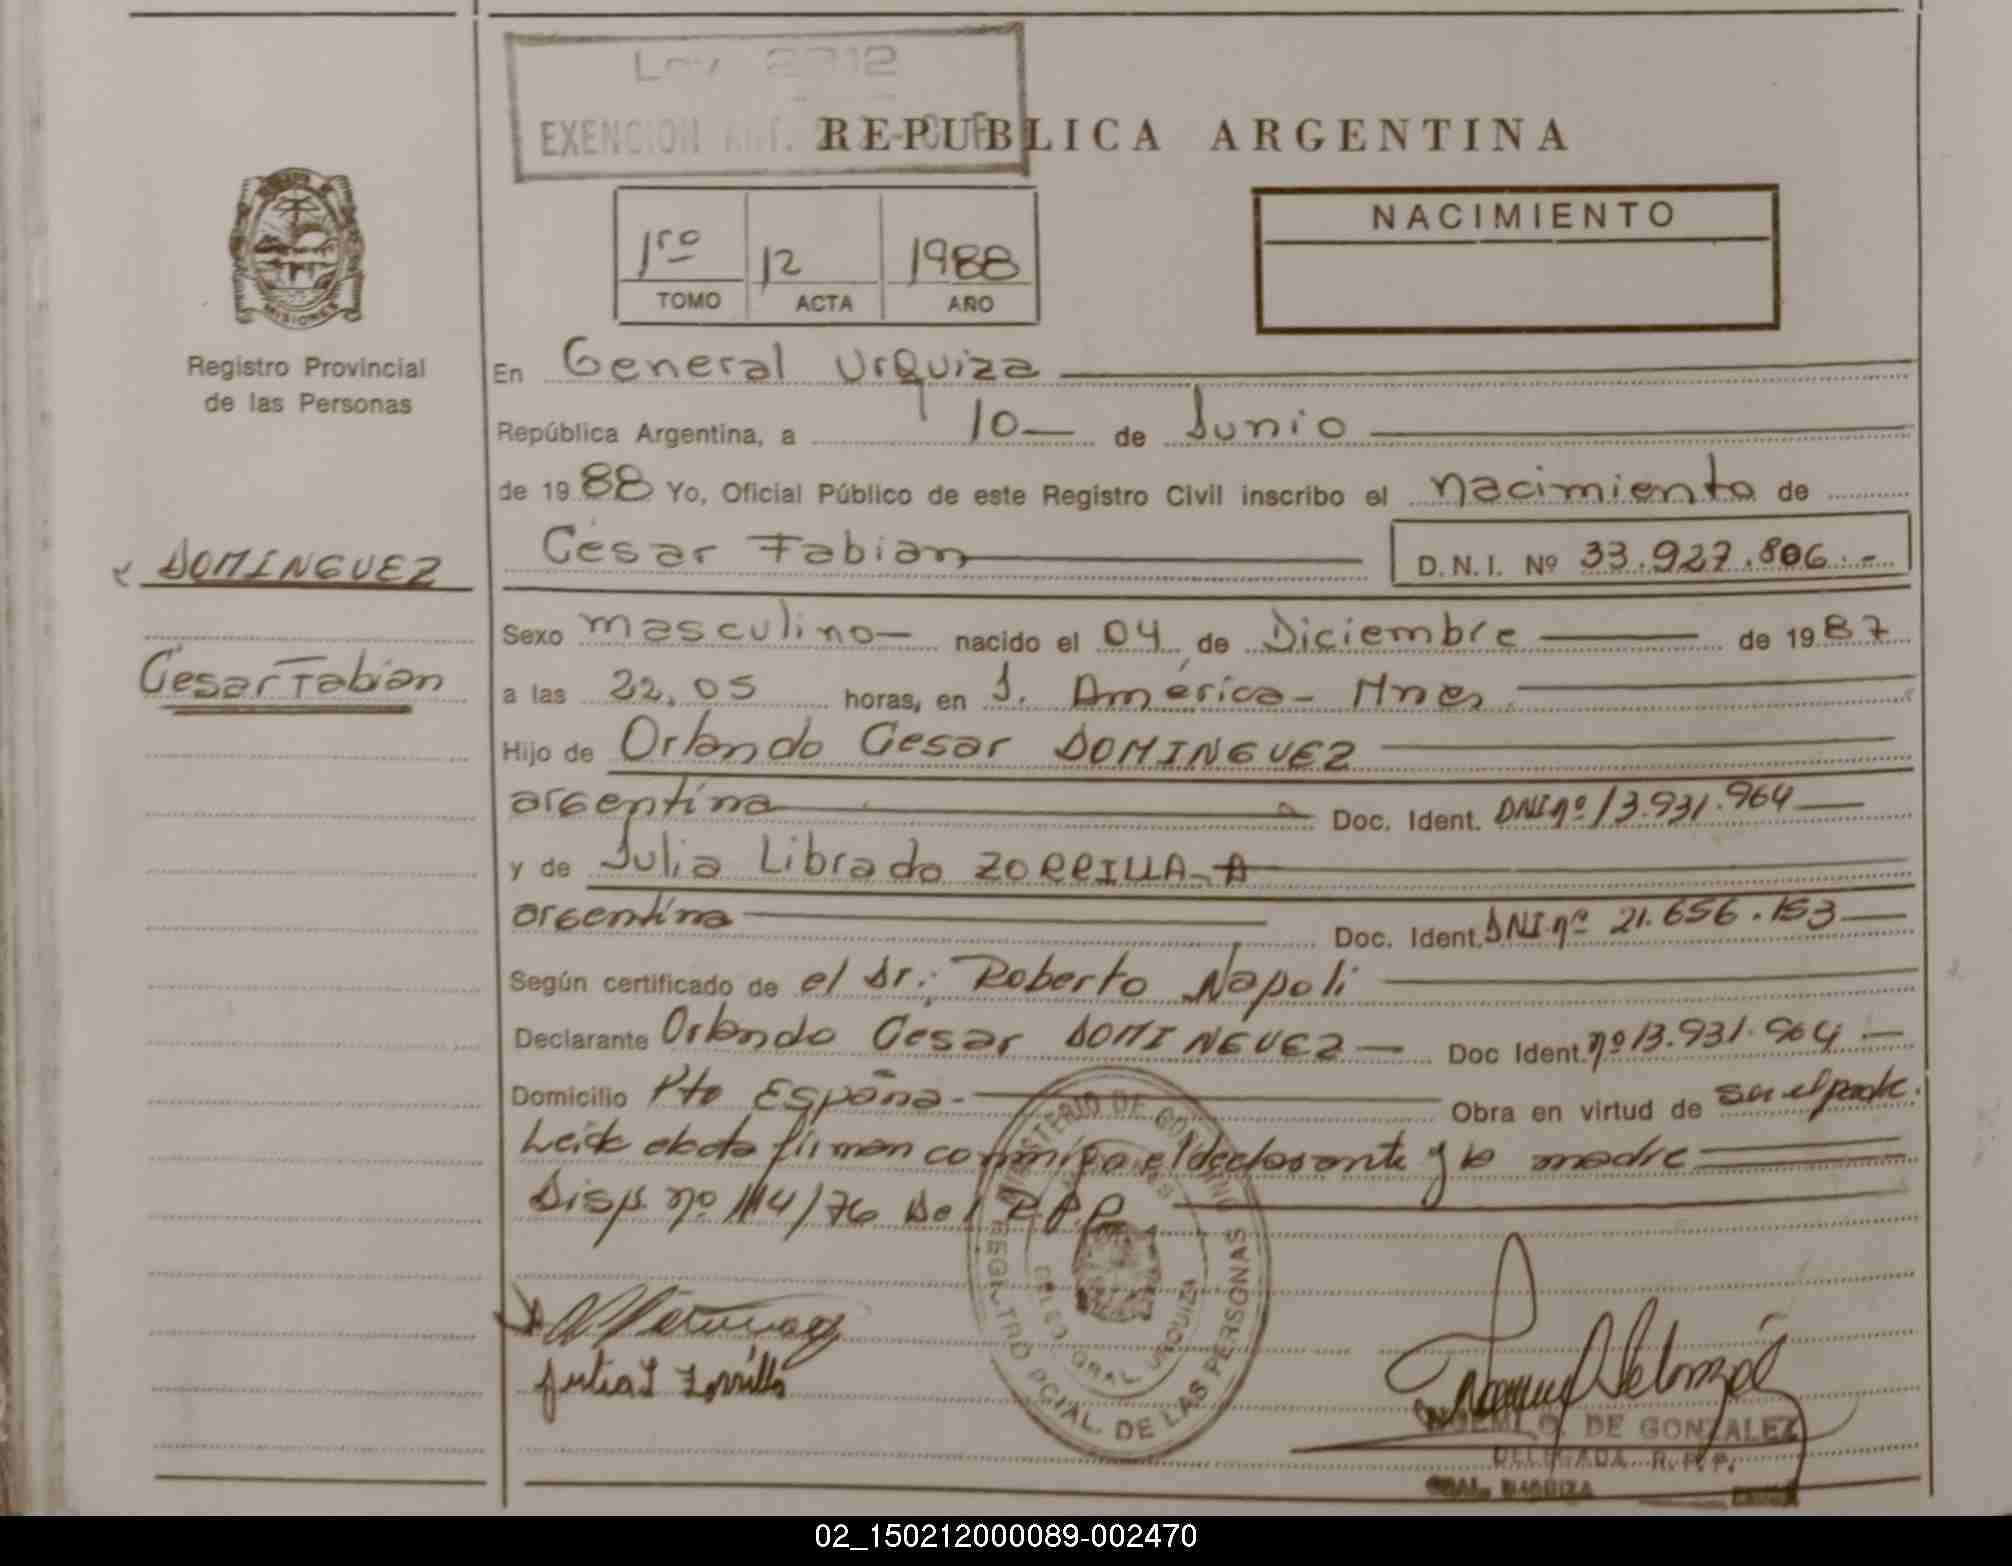 Ley 2712
EXENCION ART.
REPUBLICA ARGENTINA
1ro 12 1988
TOMO ACTA AÑO
NACIMIENTO
MISIONES
Registro Provincial
de las Personas
DOMINGUEZ
Cesar Fabian
En General Urquiza
República Argentina, a 10 de Junio
de 1988 Yo, Oficial Público de este Registro Civil inscribo el nacimiento de
César Fabian D.N.I. Nº 33.927.806.-
Sexo masculino nacido el 04 de Diciembre de 1987
a las 22,05 horas, en J. América - Mnes
Hijo de Orlando Cesar DOMINGUEZ
argentina Doc. Ident. DNI nº 13.931.964
y de Julia Librada ZORRILLA
argentina Doc. Ident. DNI nº 21.656.153
Según certificado de el Dr.: Roberto Napoli
Declarante Orlando César DOMINGUEZ Doc Ident. nº 13.931.964
Domicilio Pto España.- Obra en virtud de ser el padre.
Leida el acta firman conmigo el declarante y la madre
Disp. nº 114/76 Del R.P.P.
MINISTERIO DE GOBIERNO
REGISTRO PCIAL. DE LAS PERSONAS
DELEG. GRAL. URQUIZA
Julia L Zorrilla
NOEMI O. DE GONZALEZ
DELEGADA R. P. P.
GRAL. URQUIZA
02_150212000089-002470